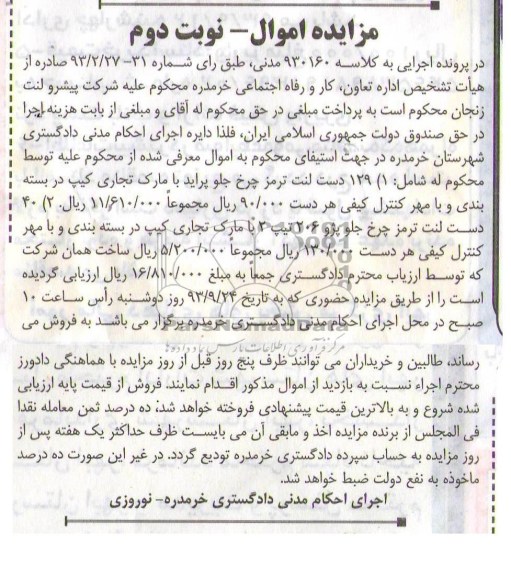 مزایده اموال- نوبت دوم
در پرونده اجرایی به کلاسه ۹۳۰۱۶۰ مدنی، طبق رای شماره ۳۱- ۹۳/۲/۲۷ صادره از
هیأت تشخیص اداره تعاون، کار و رفاه اجتماعی خرمدره محکوم علیه شرکت پیشرو لنت
زنجان محکوم است به پرداخت مبلغی در حق محکوم له آقای و مبلغی از بابت هزینه اجرا
در حق صندوق دولت جمهوری اسلامی ایران، فلذا دایره اجرای احکام مدنی دادگستری
شهرستان خرمدره در جهت استیفای محکوم به اموال معرفی شده از محکوم علیه توسط
محکوم له شامل: ۱) ۱۲۹ دست لنت ترمز چرخ جلو پراید با مارک تجاری کیپ در بسته
بندی و با مهر کنترل کیفی هر دست ۹۰/۰۰۰ ریال مجموعاً ۱۱/۶۱۰/۰۰۰ ریال. ۲) ۴۰
دست لنت ترمز چرخ جلو پژو ۲۰۶ تیپ ۲ با مارک تجاری کیپ در بسته بندی و با مهر
کنترل کیفی هر دست ۱۳۰/۰۰۰ ریال مجموعاً ۵/۲۰۰/۰۰۰ ریال ساخت همان شرکت
که توسط ارزیاب محترم دادگستری جمعاً به مبلغ ۱۶/۸۱۰/۰۰۰ ریال ارزیابی گردیده
است را از طریق مزایده حضوری که به تاریخ ۹۳/۹/۲۴ روز دوشنبه رأس ساعت ۱۰
صبح در محل اجرای احکام مدنی دادگستری خرمدره برگزار می باشد به فروش می
رساند، طالبین و خریداران می توانند ظرف پنج روز قبل از روز مزایده با هماهنگی دادورز
محترم اجراء نسبت به بازدید از اموال مذکور اقدام نمایند. فروش از قیمت پایه ارزیابی
شده شروع و به بالاترین قیمت پیشنهادی فروخته خواهد شد: ده درصد ثمن معامله نقدا
فی المجلس از برنده مزایده اخذ و مابقی آن می بایست ظرف حداکثر یک هفته پس از
روز مزایده به حساب سپرده دادگستری خرمدره تودیع گردد. در غیر این صورت ده درصد
ماخوذه به نفع دولت ضبط خواهد شد.
اجرای احکام مدنی دادگستری خرمدره- نوروزی